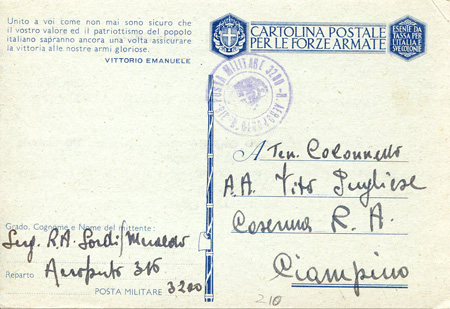 Unito a voi come non mai sono sicuro che
il vostro valore ed il patriottismo del popolo
italiano sapranno ancora una volta assicurare
la vittoria alle nostre armi gloriose.
VITTORIO EMANUELE
CARTOLINA POSTALE
PER LE FORZE ARMATE
ESENTE DA
TASSA PER
L'ITALIA
E COLONIE
POSTA MILITARE 3200
A Ten. Colonnello
A.A. Vito Pugliese
Caserma R. A.
Ciampino
Grado, Cognome e Nome del mittente:
Serg. R.A. Sordi
Reparto Aeroporto 316
POSTA MILITARE 3200
210